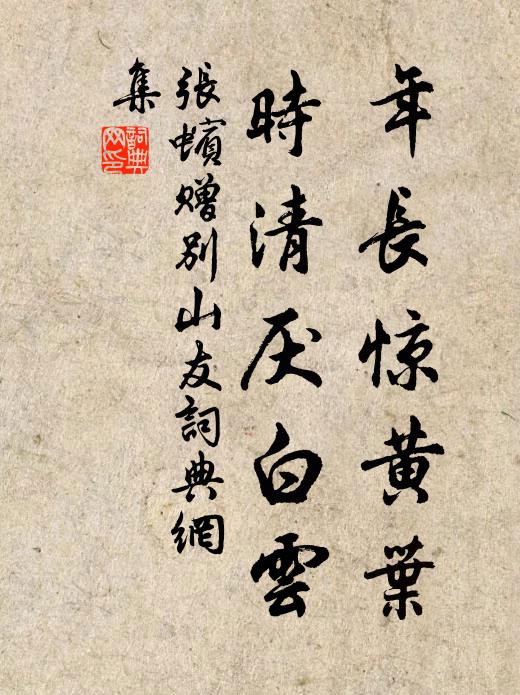 年長惊黄葉
時清厌白雲
張蠙贈別山友詞典網
集
詞典
网印